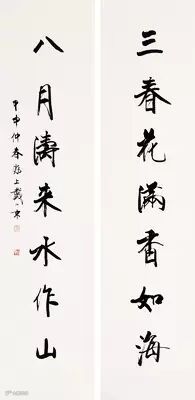 三春花满香如海
八月涛来水作山
甲申仲春
上戴